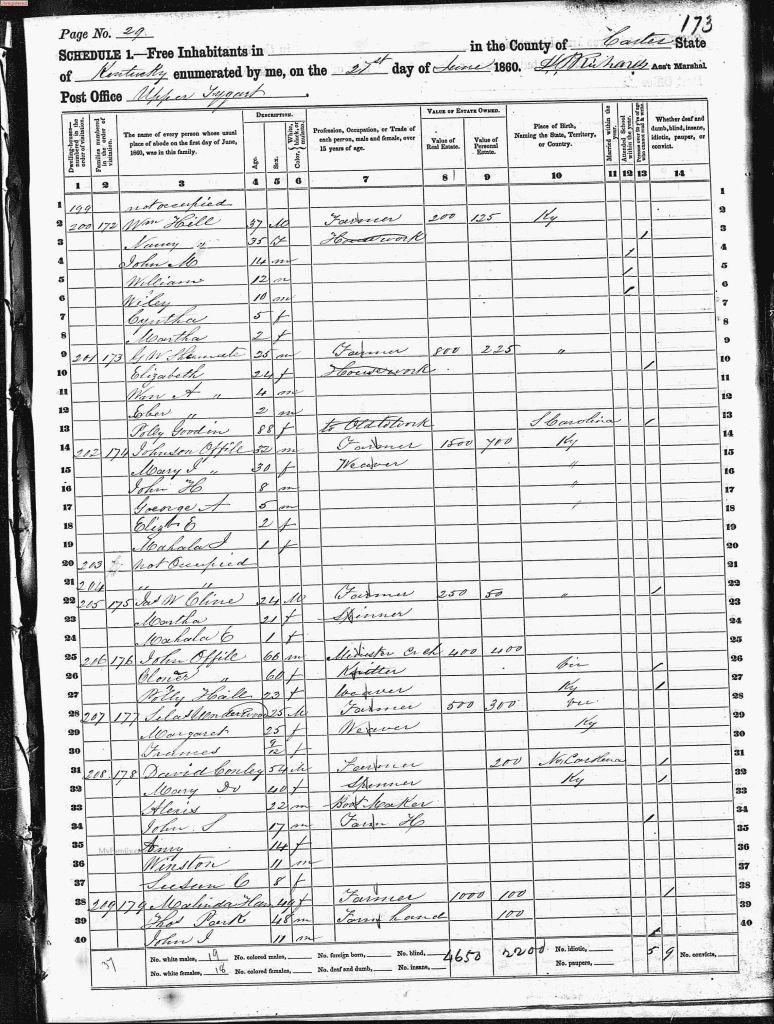 173
Page No. 29
SCHEDULE 1.—Free Inhabitants in in the County of Carter State
of Kentucky enumerated by me, on the 27st day of June 1860. Ass't Marshal.
Post Office Upper Tygart
Dwelling-houses—numbered in the order of visitation. Families numbered in the order of visitation. The name of every person whose usual place of abode on the first day of June, 1860, was in this family. DESCRIPTION. Age. Sex. Color, White, black, or mulatto. Profession, Occupation, or Trade of each person, male and female, over 15 years of age. VALUE OF ESTATE OWNED. Value of Real Estate. Value of Personal Estate. Place of Birth, Naming the State, Territory, or Country. Married within the year. Attended School within the year. Whether deaf and dumb, blind, insane, idiotic, pauper, or convict.
1 2 3 4 5 6 7 8 9 10 11 12 13 14
1 199 not occupied 1
2 200 172 Wm Hill 37 M Farmer 200 125 Ky 2
3 Nancy " 35 f Housework 1 3
4 John M 14 m 1 4
5 William 12 m 1 5
6 Wiley 10 m 1 6
7 Cyntha 5 f 7
8 Martha 2 f 8
9 201 173 G W 25 m Farmer 800 225 " 9
10 Elizabeth 24 f Housework 1 10
11 Wm A " 4 m 11
12 Eber " 2 m 12
13 Polly Goodin 88 f to Old to work S Carolina 1 13
14 202 174 Johnson Offile 52 m Farmer 1500 700 Ky 14
15 Mary J " 30 f Weaver " 15
16 John H 8 m " 16
17 George A 5 m " 17
18 Elizth E 2 f 18
19 Mahala J 1 f 19
20 203 not Occupied 20
21 204 " " 21
22 205 175 Jas W Cline 24 M Farmer 250 50 " 1 22
23 Martha 21 f Spinner 23
24 Mahala E 1 f 24
25 206 176 John Offile 66 m Minister 400 400 25
26 " 60 f Knitter Vir 1 26
27 Polly Hall 23 f Weaver Ky 1 27
28 207 177 Silas Underwood 25 M Farmer 500 300 Vir 28
29 Margaret 25 f Weaver Ky 29
30 Frances 9/12 f 30
31 208 178 David Conley 54 M Farmer 200 No Carolina 1 31
32 Mary Do 40 f Spinner Ky 1 32
33 Alexis 22 m Boot Maker 33
34 John S 17 m Farm H 1 34
35 Amy 14 f 35
36 Winston 11 m 36
37 Seesun C 8 f 37
38 209 179 Malinda 49 f Farmer 1000 100 1 38
39 Thos Park 48 m Farm hand 100 39
40 John J 11 m 40
No. white males, 19 No. colored males, No. foreign born, No. blind, 4650 2200 No. idiotic, 5 9 No. convicts,
No. white females, 18 No. colored females, No. deaf and dumb, No. insane, No. paupers,
37